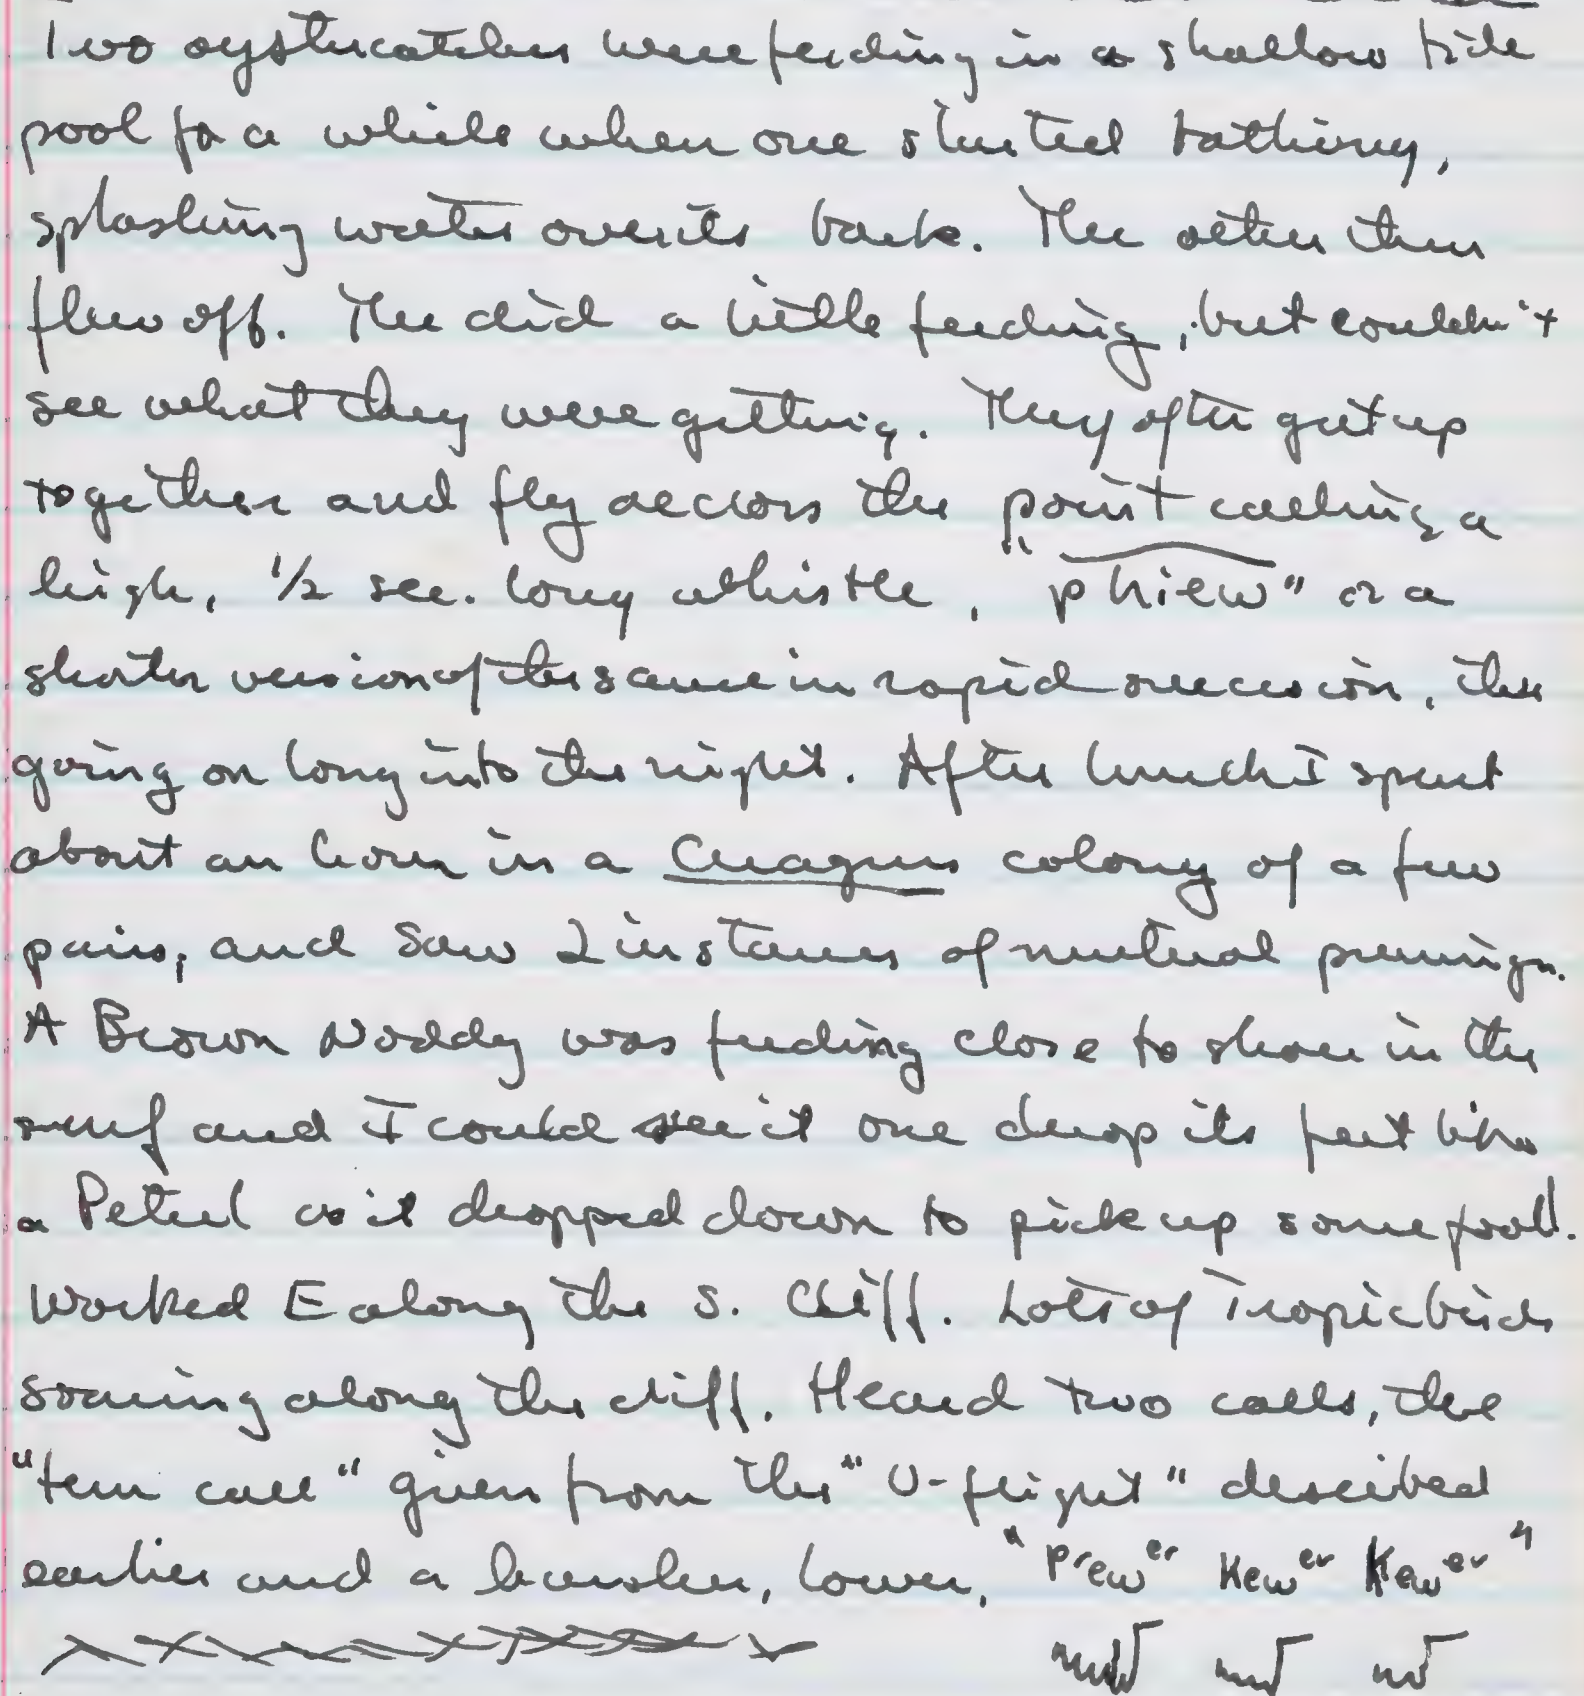 Two oystercatchers were feeding in a shallow tide
pool for a while when one started bathing,
splashing water over its back. The other then
flew off. The did a little feeding, but couldn't
see what they were getting. They often get up
together and fly accross the point calling a
high, 1/2 sec. long whistle, "phiew" or a
shorter version of the same in rapid succession, the
going on long into the night. After lunch I spent
about an hour in a Creagrus colony of a few
pairs, and saw 2 instances of mutual preening.
A Brown Noddy was feeding close to shore in the
surf and I could see it one drop its feet like
a Petrel as it dropped down to pick up some food.
Worked E along the S. Cliff. Lots of Tropicbirds
soaring along the cliff. Heard two calls, the
"tern call" given from the "U-flight" described
earlier and a harsher, lower, "Prewer Kewer Kewer"